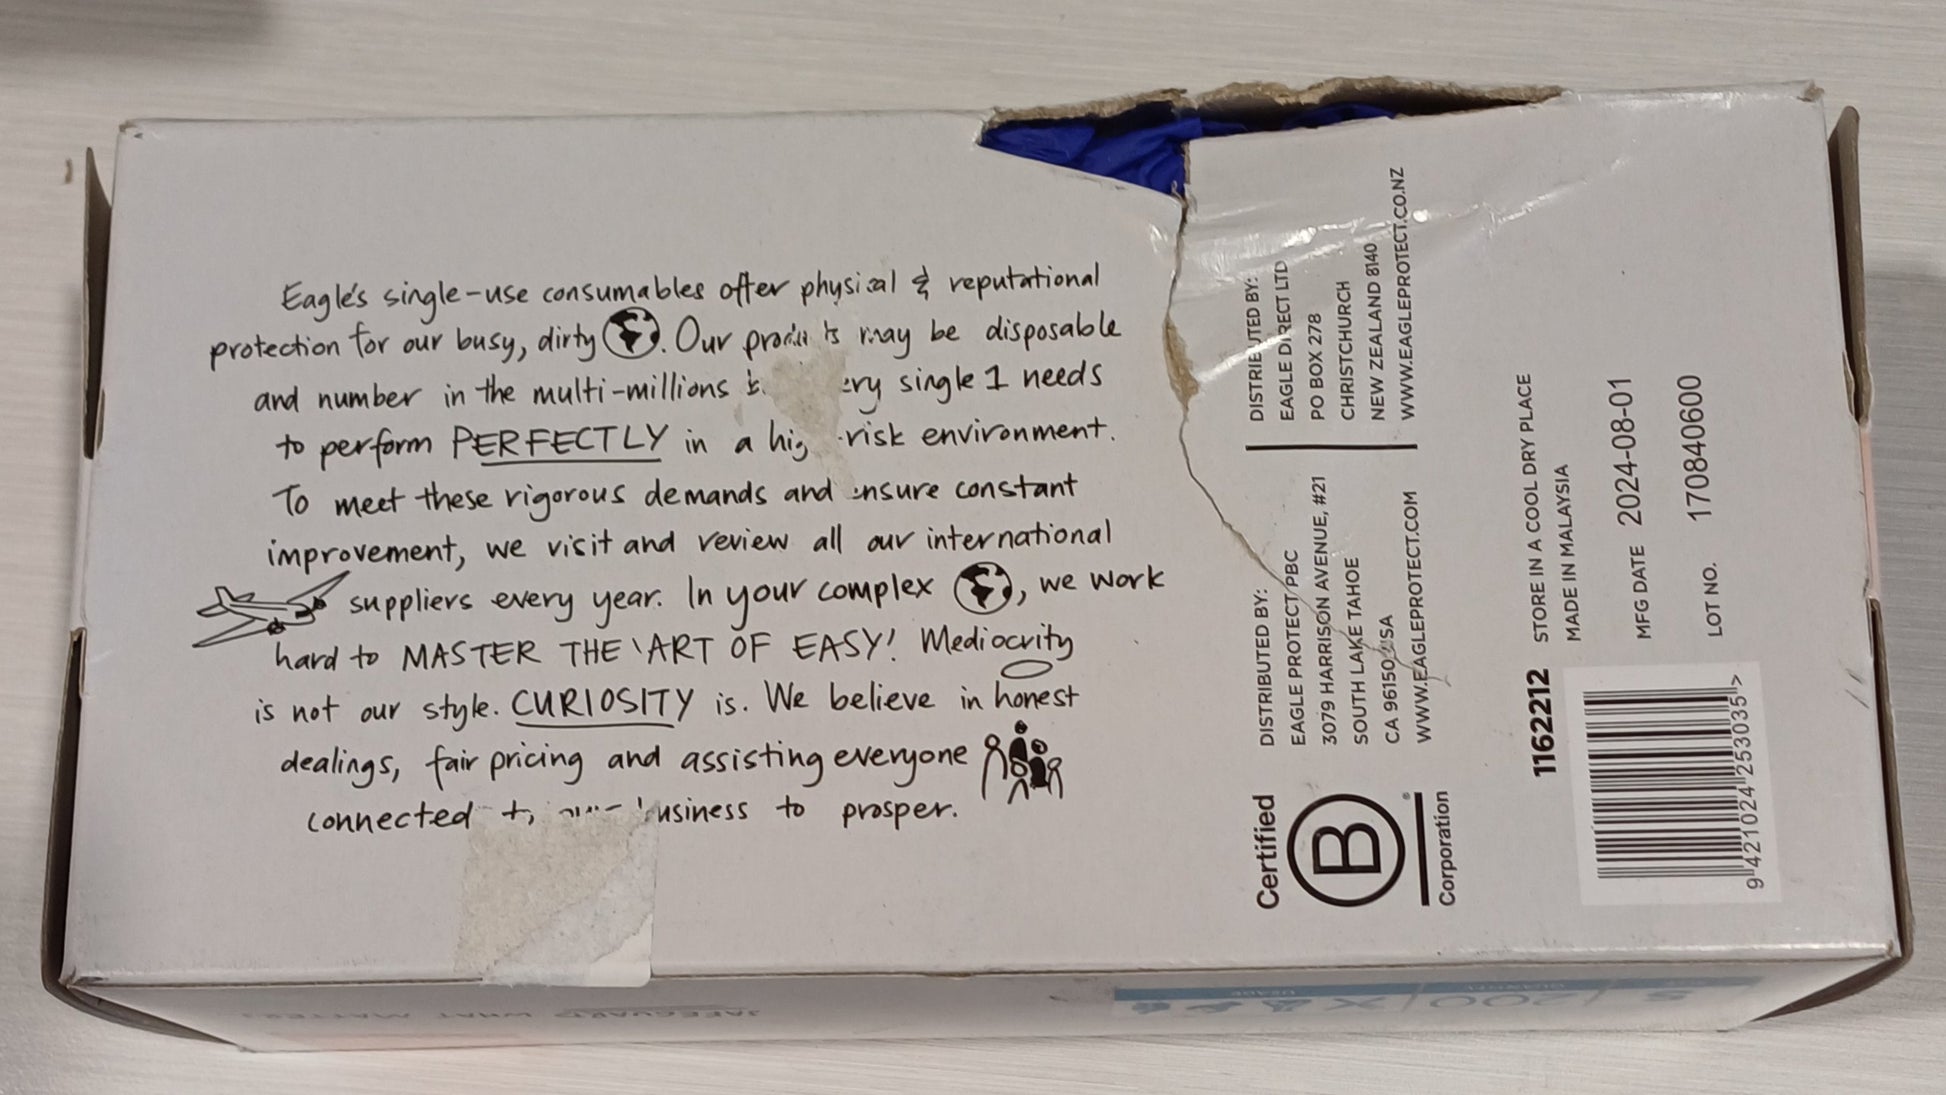 Eagle's single-use consumables offer physical & reputational
protection for our busy, dirty . Our may be disposable
and number in the multi-millions single 1 needs
to perform PERFECTLY in a risk environment.
To meet these rigorous demands and ensure constant
improvement, we visit and review all our international
suppliers every year. In your complex , we work
hard to MASTER THE 'ART OF EASY! Mediocrity
is not our style. CURIOSITY is. We believe in honest
dealings, fair pricing and assisting everyone
connected business to prosper.
DISTRIBUTED BY:
EAGLE DIRECT LTD
PO BOX 278
CHRISTCHURCH
NEW ZEALAND 8140
WWW.EAGLEPROTECT.CO.NZ
DISTRIBUTED BY:
EAGLE PROTECT PBC
3079 HARRISON AVENUE, #21
SOUTH LAKE TAHOE
CA 96150 USA
WWW.EAGLEPROTECT.COM
Certified
B
Corporation
1162212
STORE IN A COOL DRY PLACE
MADE IN MALAYSIA
MFG DATE 2024-08-01
LOT NO. 170840600
9 421024 253035 >
SAFEGUARD WHAT MATTERS
QUANTITY
200